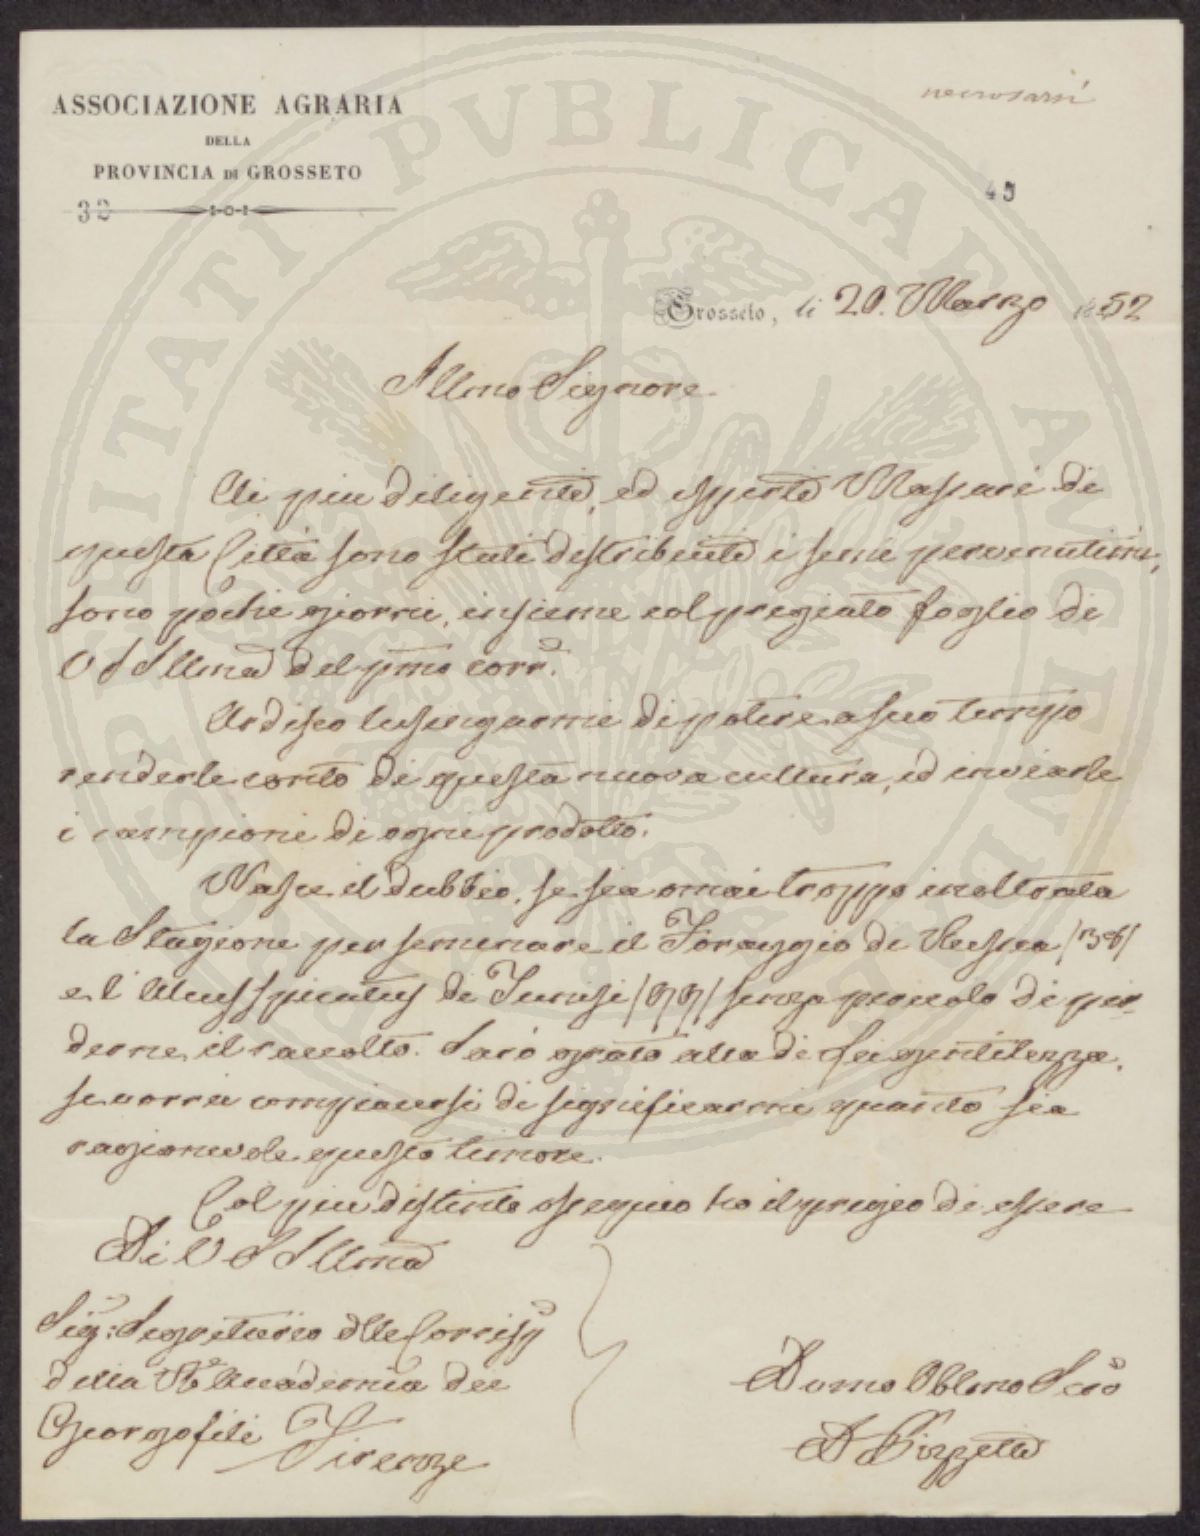 ASSOCIAZIONE AGRARIA
DELLA
PROVINCIA DI GROSSETO
32
45
Grosseto, li 20. Marzo 1852
Illmo Signore
Ai piu diligenti, ed esperti Massari di
questa Città sono stati distribuiti i semi pervenutimi,
sono pochi giorni, insieme col pregiato foglio di
V S Illma del pmo corre.
Ardisco lusingarmi di potere a suo tempo
renderle conto di questa nuova cultura, ed inviarle
i campioni di ogni prodotto.
Nasce il dubbio, se sia omai troppo inoltrata
la Stagione per seminare il Foraggio di Russia /38/
e l' di Tunisi /99/ senza pericolo di per-
derne il raccolto. Sarò grato alla di Lei gentilezza,
se vorrà compiacersi di significarmi quanto sia
ragionevole questo timore.
Col piu distinto ossequio ho il pregio di essere
Di V S Illma
Sig: Segretario dlle Corrisp
della Re Accademia dei
Georgofili Firenze
Dvmo Obbmo Servo
A Pizzetti
PVBLICAE
PROSPERITATI
AVGENDAE